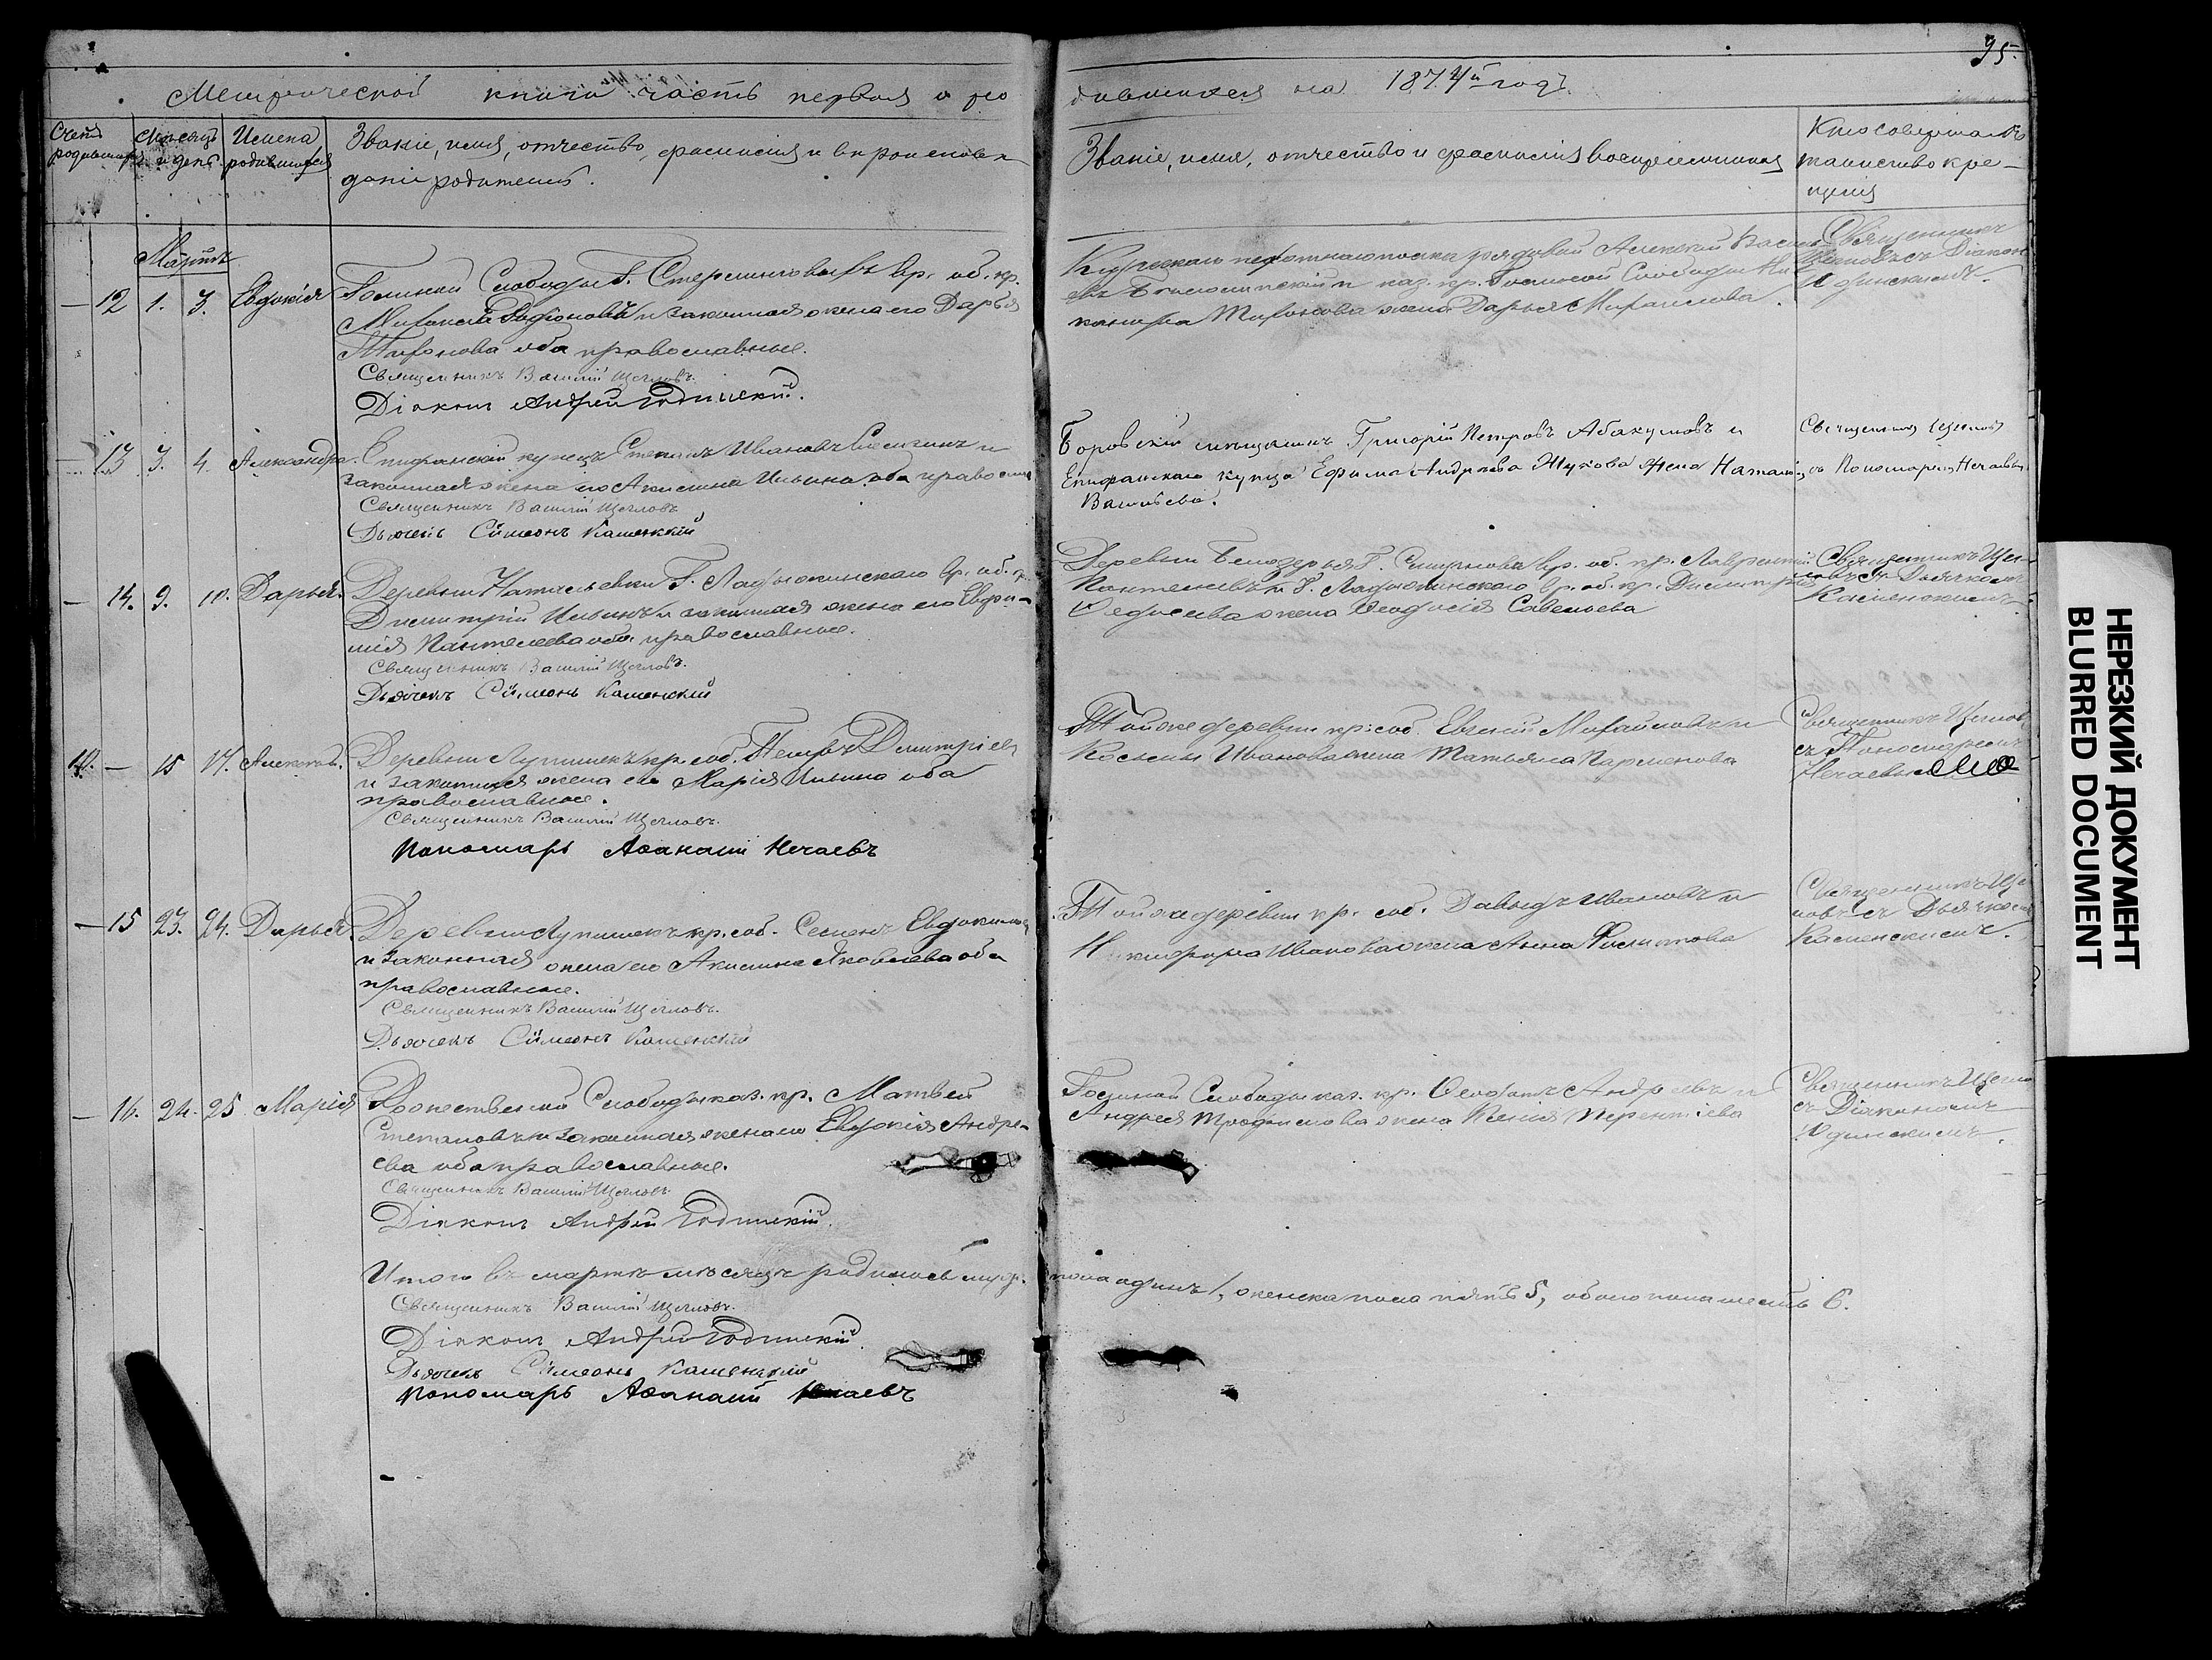 95.
Метрической книги часть первая о ро
дившихся на 1874й годъ.
Счетъ родившихся
Месяцъ и день
Имена родившихся
Званіе, имя, отчество, фамилія и вероисповѣ-
даніе родителей.
Званіе, имя, отчество и фамилія воспріемниковъ
Кто совершалъ
таинство кре-
щенія
Мартъ
12 1. 3. Евдокія
Слободы Г. вр. об. кр.
и законная жена его Дарья
обa православные.
Священникъ Василій Щегловъ.
Діаконъ Андрей
пехотнаго полка рядовой Алексей
каз. кр. Слободы
жена Дарья
Священникъ
съ Діакон
13 3. 4. Александра.
Епифанскій купецъ Степанъ Ивановъ и
законная жена его Акилина Ильина оба правосла
Священникъ Василій Щегловъ
Дьячекъ Сѵмеонъ Каменскій
Боровскій мещанинъ Григорій Петровъ Абакумовъ и
Епифанскаго купца Ефима Андреева Жукова жена Наталія
Васильева.
Священникъ Щегловъ
съ Пономаремъ Нечаевы
14. 9. 10. Дарья.
Деревни Натальевки Г. вр. об. к
Димитрій Ильинъ и законная жена его Евфи-
мія Пантелеева оба православные.
Священникъ Василій Щегловъ.
Дьячекъ Сѵмеонъ Каменскій
Деревни Белозерья Г. вр. об. кр. Лаврентій
Г. вр. об. кр. Димитрія
Федосеева жена Феодосія Савельева
Священникъ Щег-
ловъ съ Дьячкомъ
Каменскимъ.
14. — 15 17. Александ.
Деревни Лупишекъ кр. соб. Петръ Димитріев
и законная жена его Марія Ильина оба
православные.
Священникъ Василій Щегловъ.
Пономарь Аѳанасій Нечаевъ
Той же деревни кр: соб. Евгеній Михайловъ и
Космы Иванова жена Татьяна Парменова
Священникъ Щеглов
съ Пономаремъ
Нечаевымъ
15 23. 24. Дарья.
Деревни Лупишекъ кр. соб. Семенъ Евдокимо
и законная жена его Акилина Яковлева оба
православные.
Священникъ Василій Щегловъ.
Дьячекъ Сѵмеонъ Каменскій
Той же деревни кр. соб. Давыдъ Ивановъ и
Никифора Иванова жена Анна Филиппова
Священникъ Щег
ловъ съ Дьячкомъ
Каменскимъ.
16. 24. 25 Марія
Рожественой Слободы каз. кр. Матвей
Степановъ и законная жена его Евдокія Андре-
ева оба православные.
Священникъ Василій Щегловъ
Діаконъ Андрей
Слободы каз. кр. Андреевъ и
Андрея Трофимова жена Ксенія Терентіева
Священникъ Щегло
съ Діакономъ
Итого въ мартѣ месяцѣ родилось муж.
пола одинъ 1, женска пола пять 5, обоего пола шесть 6.
Священникъ Василій Щегловъ.
Діаконъ Андрей
Дьячекъ Сѵмеонъ Каменскій
Пономарь Аѳанасій Нечаевъ
НЕРЕЗКИЙ ДОКУМЕНТ
BLURRED DOCUMENT